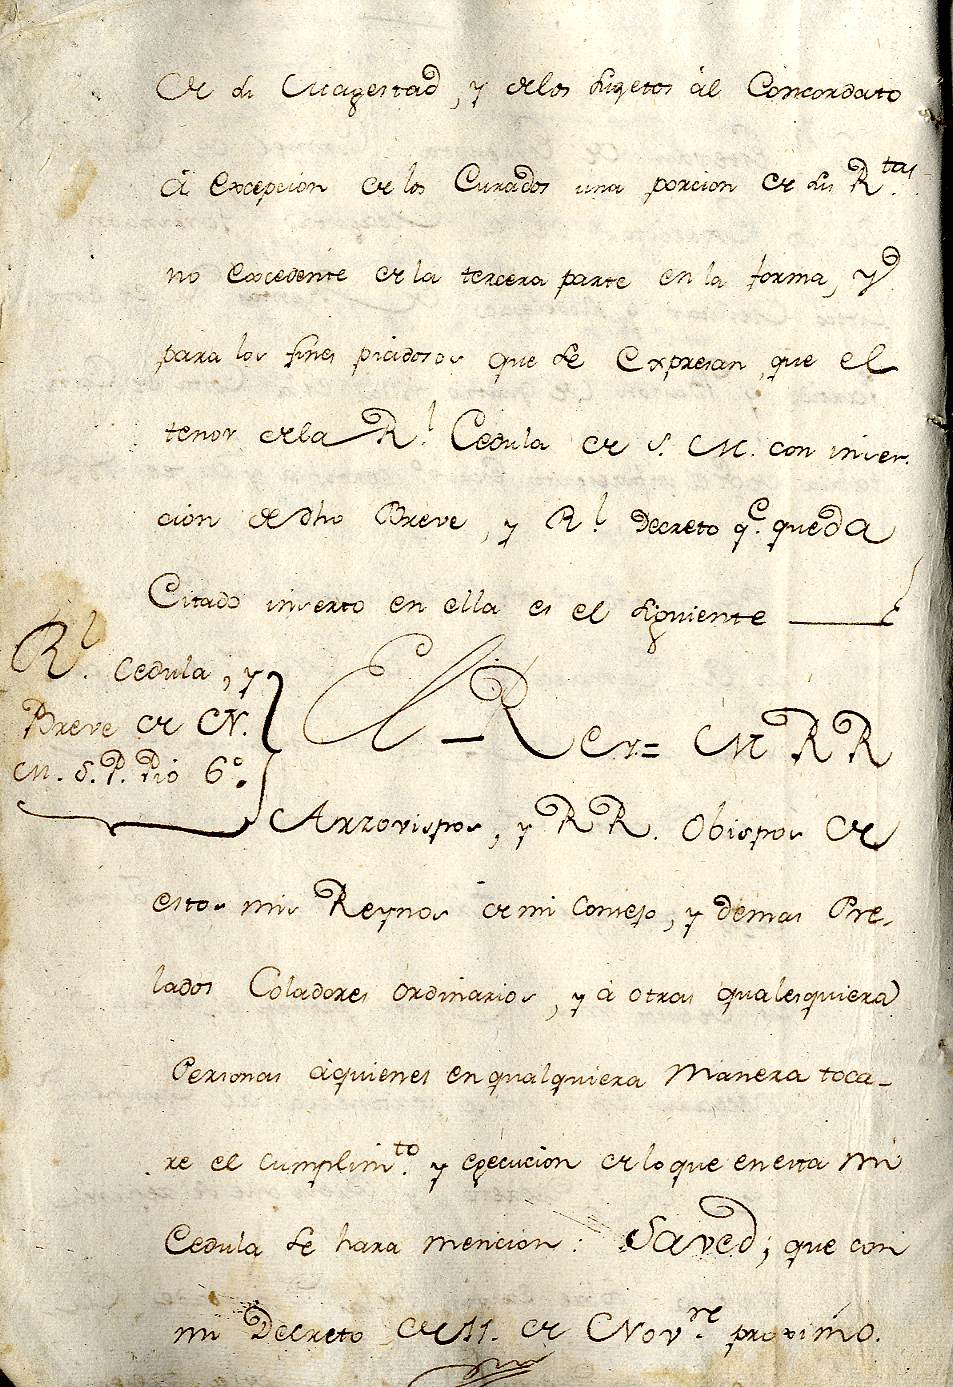 de su Magestad, y delos sugetos àl Concordato
à excepcion de los Curados una porcion de sus R.tas
no excedente de la tercera parte en la forma, y
para los fines piadosos que se expresan, que el
tenor dela R.l Cedula de S. M. con inser-
cion de dho Breve, y R.l Decreto q.e queda
Citado inserto en ella es el siguiente
R.l Cedula, y
Breve de N.
M. S. P. Pio 6.º
El Rey = M RR
Arzovispos, y RR. Obispos de
estos mis Reynos de mi Consejo, y demas Pre-
lados Coladores ordinarios, y à otras qualesquiera
Personas àquienes en qualquiera manera toca-
re el cumplim.to y egecucion de lo que en esta mi
Cedula se hara mencion: Saved; que con
mi Decreto de 11. de Nov.re proximo.